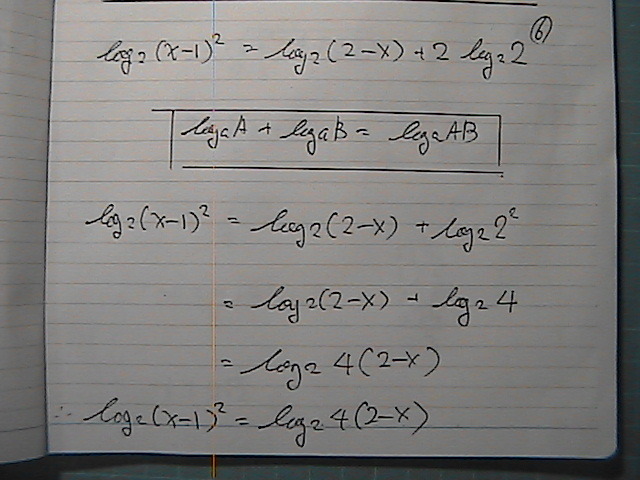 log₂(x-1)² = log₂(2-x) + 2 log₂2 ⑥
logₐA + logₐB = logₐAB
log₂(x-1)² = log₂(2-x) + log₂2²
= log₂(2-x) + log₂4
= log₂4(2-x)
∴ log₂(x-1)² = log₂4(2-x)